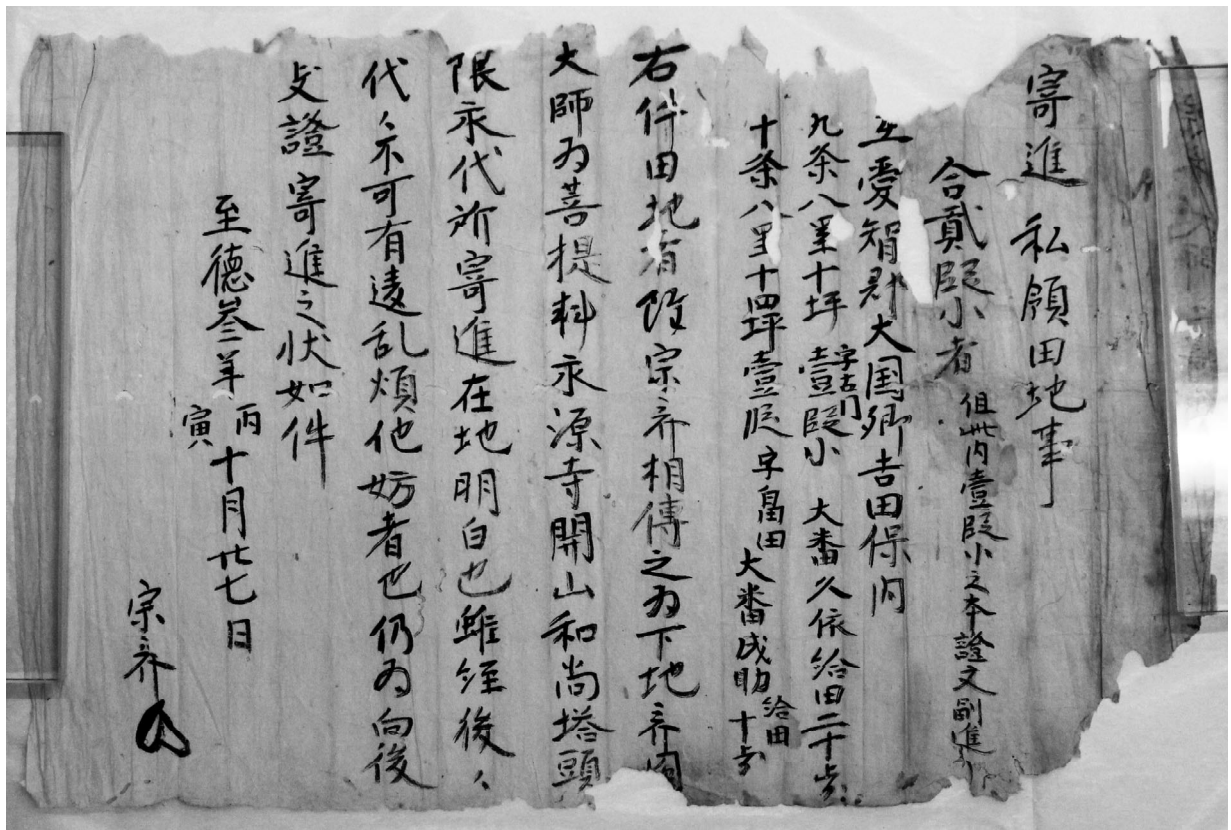 寄進 私領田地事
合貳段小者 但此内壹段小之本證文副進
愛智郡大国郷吉田保内
九条八里十坪 字古門 壹段小 大番久依給田二十歩
十条八里十四坪壹段 字畠田 大番成助給田 十歩
右件田地者 宗齐相傳之為下地
大師為菩提料永源寺開山和尚塔頭
限永代所寄進在地明白也雖経後々
代々不可有違乱煩他妨者也仍為向後
支證寄進之状如件
至徳叁年丙寅十月廿七日
宗齐